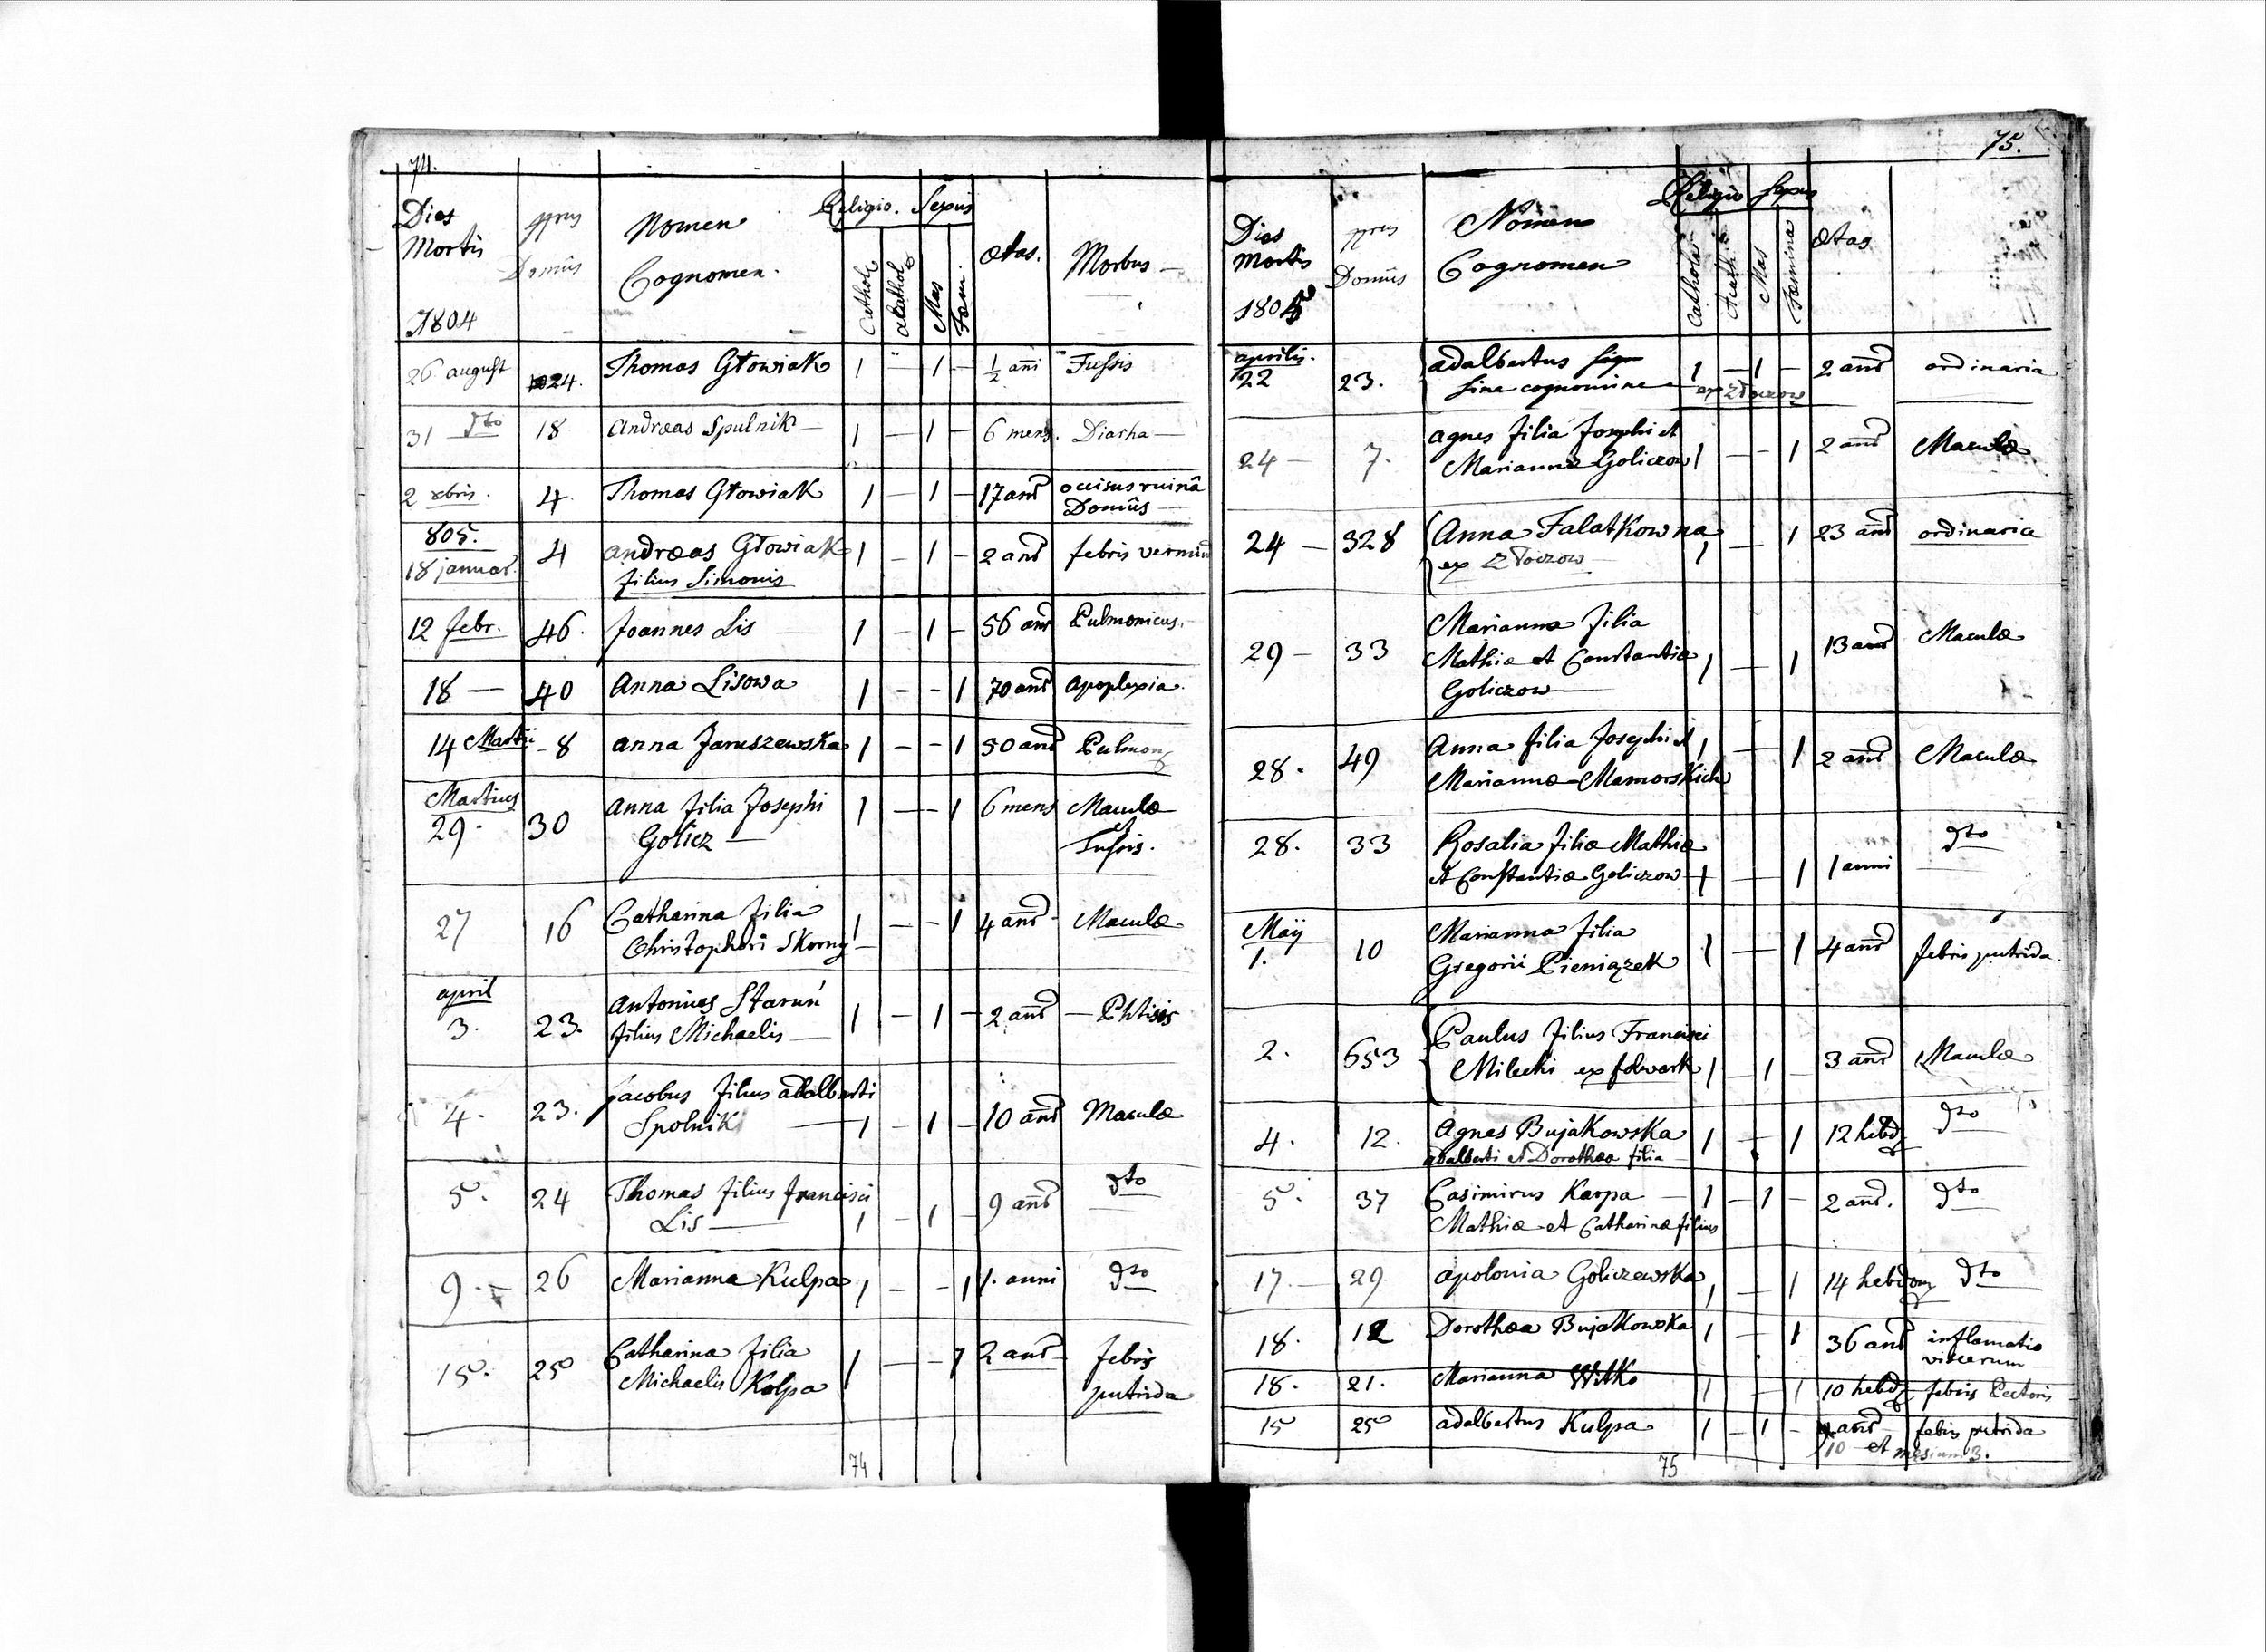 74.
Dies Mortis 1804 Nrus Domûs Nomen Cognomen. Religio. Sexus Cathol. Acathol. Mas Fæm. Ætas. Morbus
26 august 24. Thomas Głowiak 1 - 1 - ½ añi Tussis
31 dto 18 Andræas Spulnik 1 - 1 - 6 mens. Diarha
2 xbris. 4. Thomas Głowiak 1 - 1 - 17 anr occisus ruinâ
Domûs
805.
18 januar. 4 Andræas Głowiak 1 - 1 - 2 anr febris vermin
filius Simonis
12 febr. 46. Joannes Lis 1 - 1 - 56 anr Pulmonicus.
18 — 40 Anna Lisowa 1 - - 1 70 anr Apoplexia.
14 Martii - 8 Anna Jaruszewska 1 - - 1 50 anr Pulmon
Martius
29. 30 Anna filia Josephi 1 - - 1 6 mens Maculæ
Golicz et
Tussis.
27 16 Catharina filia 1 - - 1 4 anr Maculæ
Christophori Skorny
april
3. 23. Antonius Staruń 1 - 1 - 2 anr Phtisis
filius Michaelis
4. 23. Jacobus filius adalberti
Spolnik 1 - 1 - 10 anr Maculæ
5. 24 Thomas filius Francisci 9 anr dto
Lis 1 - 1 -
9. 26 Marianna Kulpa 1 - - 1 1. anni dto
15. 25 Catharina filia 1 - - 1 2 anr febris
Michaelis Kolpa putrida
74
75.
Dies Mortis 1805 Nrus Domûs Nomen Cognomen Religio Sexus Cathol. Acath. Mas Fæmina Ætas
aprilis.
22 23. Adalbertus sign 1 - 1 - 2 anr ordinaria
sine cognomine ex Złoczow
24 — 7. Agnes filia Josephi et 2 anr Maculæ
Mariannæ Goliczow 1 - - 1
24 — 328 Anna Falatkowna 1 - 1 23 anr ordinaria
ex Złoczow
29 — 33 Marianna filia
Mathiæ et Constantiæ 1 - 1 13 anr Maculæ
Goliczow
28. 49 Anna filia Josephi et 1 - 1 2 anr Maculæ
Mariannæ Mamorskich
28. 33 Rosalia filiæ Mathiæ dto
et Constantiæ Goliczow 1 - 1 1 anni
Maÿ
1. 10 Marianna filia 1 - 1 4 anr febris putrida.
Gregorii Pieniązek
2. 653 Paulus filius Francisci 3 anr Maculæ
Milecki ex folwark 1 - 1 -
4. 12. Agnes Bujakowska 1 - 1 12 hebd dto
adalberti et Dorotheæ filia
5. 37 Casimirus Karpa 1 - 1 - 2 anr. dto
Mathiæ et Catharinæ filius
17. — 29. Apolonia Goliczewska 1 - 1 14 hebdom dto
18. 12 Dorothea Bujakowska 1 - 1 36 anr inflamatio
viscerum
18. 21. Marianna Witko 1 - 1 10 hebd febris Pectoris
15 25 adalbertus Kulpa 1 - 1 - anr febris putrida
10 et mesium 3.
75